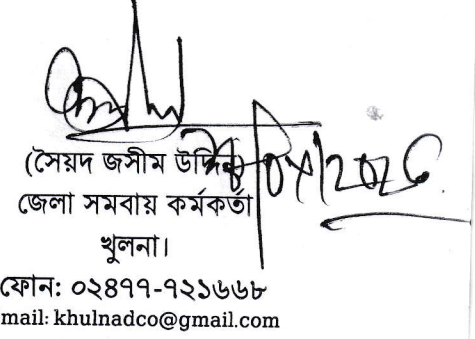 (সৈয়দ জসীম উদ্দিন)
জেলা সমবায় কর্মকর্তা
খুলনা।
ফোন: ০২৪৭৭-৭২১৬৬৮
mail: khulnadco@gmail.com